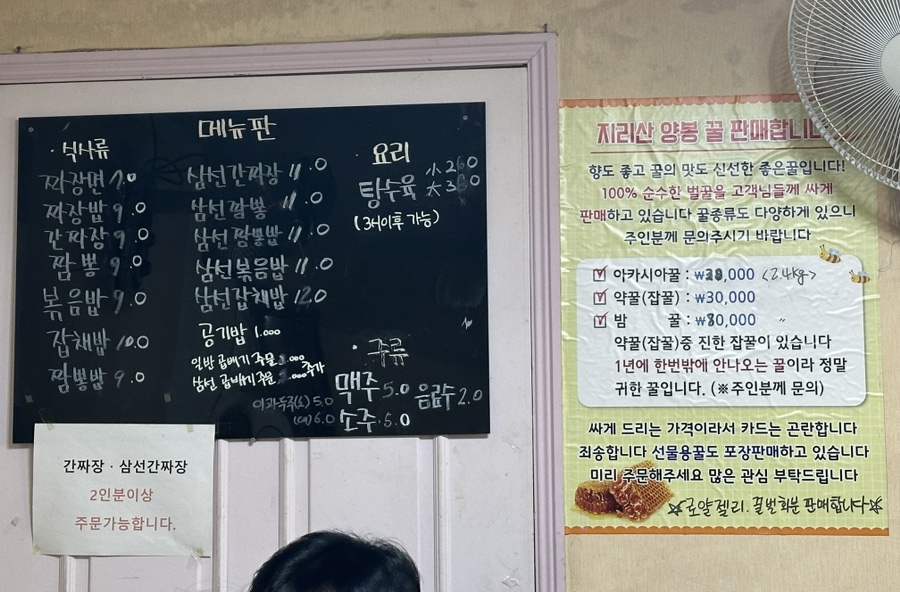 메뉴판
· 식사류
짜장면 7.0
짜장밥 9.0
간짜장 9.0
짬뽕 9.0
볶음밥 9.0
잡채밥 10.0
짬뽕밥 9.0
삼선간짜장 11.0
삼선짬뽕 11.0
삼선짬뽕밥 11.0
삼선볶음밥 11.0
삼선잡채밥 12.0
공기밥 1.000
일반곱배기 추문
삼선곱배기 추가
이과두주(소) 5.0
(대) 6.0
요리
탕수육 小
大
(3시이후 가능)
· 주류
맥주 5.0
소주 · 5.0
음료수 2.0
간짜장 · 삼선간짜장
2인분이상
주문가능합니다.
지리산 양봉 꿀 판매합니
향도 좋고 꿀의 맛도 신선한 좋은꿀입니다!
100% 순수한 벌꿀을 고객님들께 싸게
판매하고 있습니다 꿀종류도 다양하게 있으니
주인분께 문의주시기 바랍니다
아카시아꿀 : <2.4kg>
약꿀(잡꿀) : ₩30,000
밤 꿀 : 〃
약꿀(잡꿀)중 진한 잡꿀이 있습니다
1년에 한번밖에 안나오는 꿀이라 정말
귀한 꿀입니다. (※주인분께 문의)
싸게 드리는 가격이라서 카드는 곤란합니다
죄송합니다 선물용꿀도 포장판매하고 있습니다
미리 주문해주세요 많은 관심 부탁드립니다
☆로얄젤리. 꿀벌화분 판매합니다☆